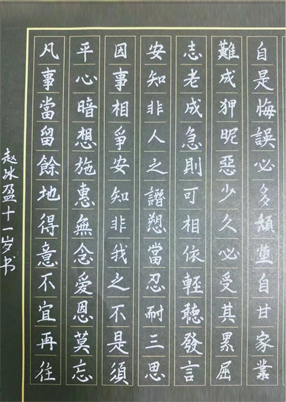 自是悔誤必多頹墮自甘家業
難成狎昵惡少久必受其累屈
志老成急則可相依輕聽發言
安知非人之譖愬當忍耐三思
因事相爭安知非我之不是須
平心暗想施惠無念愛恩莫忘
凡事當留餘地得意不宜再往
赵冰盈十一岁书